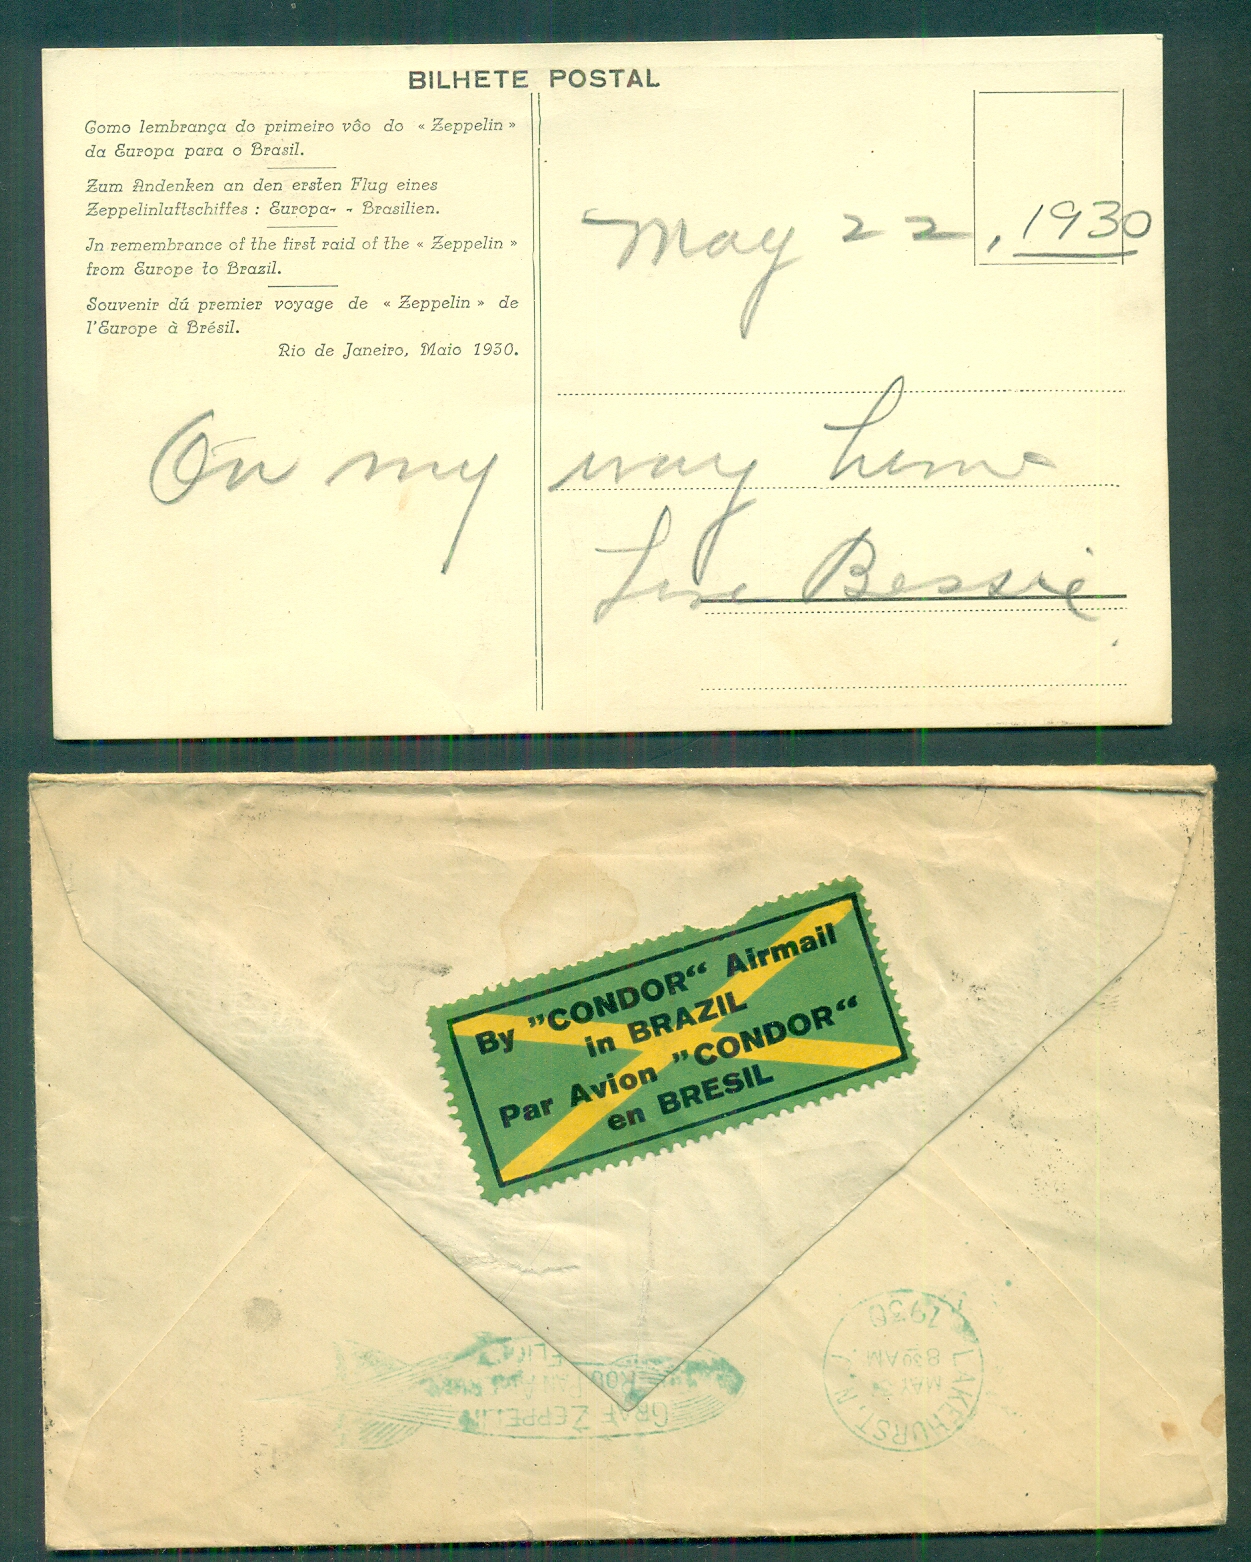 BILHETE POSTAL
Como lembrança do primeiro vôo do « Zeppelin »
da Europa para o Brasil.
Zum Andenken an den ersten Flug eines
Zeppelinluftschiffes : Europa- - Brasilien.
In remembrance of the first raid of the « Zeppelin »
from Europe to Brazil.
Souvenir dú premier voyage de « Zeppelin » de
l'Europe à Brésil.
Rio de Janeiro, Maio 1930.
May 22, 1930
On my way home
Love Bessie
By "CONDOR" Airmail
in BRAZIL
Par Avion "CONDOR"
en BRESIL
GRAF ZEPPELIN
LAKEHURST, N.
MAY
8 30 AM
1930